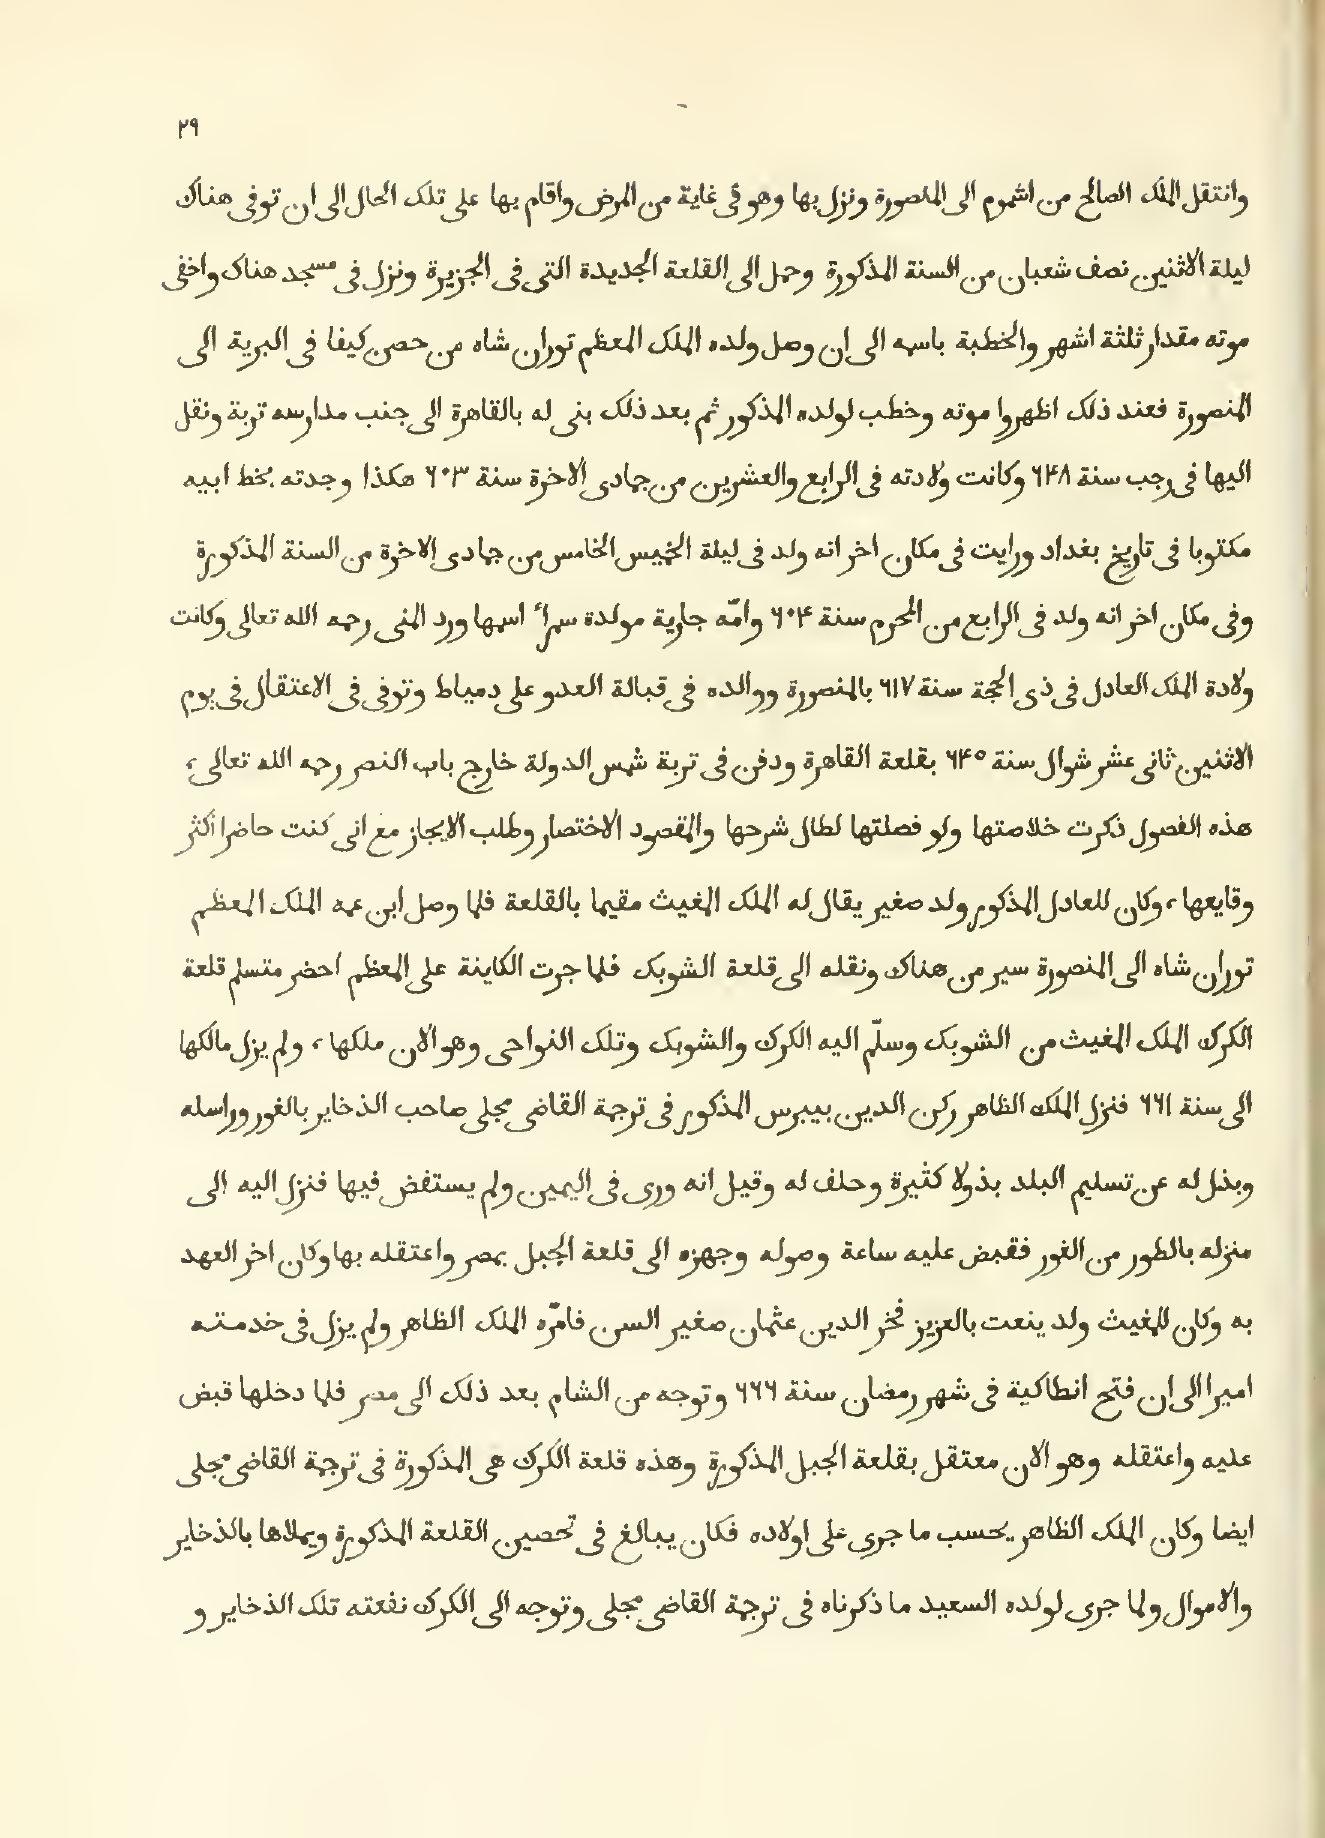 ٢٩
وانتقل الملك الصالح من اشموم الى المنصورة ونزل بها وهو فى غاية من المرض واقام بها على تلك الحال الى ان توفى هناك
ليلة الاثنين نصف شعبان من السنة المذكورة وحمل الى القلعة الجديدة التى فى الجزيرة ونزل فى مسجد هناك واخفى
موته مقدار ثلثة اشهر والخطبة باسمه الى ان وصل ولده الملك المعظم توران شاه من حصن كيفا فى البرية الى
المنصورة فعند ذلك اظهروا موته وخطب لولده المذكور ثم بعد ذلك بنى له بالقاهرة الى جنب مدارسه تربة ونقل
اليها فى رجب سنة ٦٤٨ وكانت ولادته فى الرابع والعشرين من جمادى الاخرة سنة ٦٠٣ هكذا وجدته بخط ابيه
مكتوبا فى تاريخ بغداد ورايت فى مكان اخر انه ولد فى ليلة الخميس الخامس من جمادى الاخرة من السنة المذكورة
وفى مكان اخر انه ولد فى الرابع من المحرم سنة ٦٠٤ وامّه جارية مولدة سمراء اسمها ورد المنى رحمه الله تعالى وكانت
ولادة الملك العادل فى ذى الحجة سنة ٦١٧ بالمنصورة ووالده فى قبالة العدو على دمياط وتوفى فى الاعتقال فى يوم
الاثنين ثانى عشر شوال سنة ٦٤٥ بقلعة القاهرة ودفن فى تربة شمس الدولة خارج باب النصر رحمه الله تعالى ،
هذه الفصول ذكرت خلاصتها ولو فصلتها لطال شرحها والمقصود الاختصار وطلب الايجاز مع انى كنت حاضرا اكثر
وقايعها ، وكان للعادل المذكور ولد صغير يقال له الملك المغيث مقيما بالقلعة فلما وصل ابن عمه الملك المعظم
توران شاه الى المنصورة سير من هناك ونقله الى قلعة الشوبك فلما جرت الكاينة على المعظم احضر متسلم قلعة
الكرك الملك المغيث من الشوبك وسلّم اليه الكرك والشوبك وتلك النواحى وهو الان ملكها ، ولم يزل مالكها
الى سنة ٦٦١ فنزل الملك الظاهر ركن الدين بيبرس المذكور فى ترجمة القاضى مجلى صاحب الذخاير بالغور وراسله
وبذل له عن تسليم البلد بذولا كثيرة وحلف له وقيل انه ورى فى اليمين ولم يستفض فيها فنزل اليه الى
منزله بالطور من الغور فقبض عليه ساعة وصوله وجهزه الى قلعة الجبل بمصر واعتقله بها وكان اخر العهد
به وكان للمغيث ولد ينعت بالعزيز فخر الدين عثمان صغير السن فامّره الملك الظاهر ولم يزل فى خدمته
اميرا الى ان فتح انطاكية فى شهر رمضان سنة ٦٦٦ وتوجه من الشام بعد ذلك الى مصر فلما دخلها قبض
عليه واعتقله وهو الان معتقل بقلعة الجبل المذكورة وهذه قلعة الكرك هى المذكورة فى ترجمة القاضى مجلى
ايضا وكان الملك الظاهر يحسب ما جرى على اولاده فكان يبالغ فى تحصين القلعة المذكورة ويملاها بالذخاير
والاموال ولما جرى لولده السعيد ما ذكرناه فى ترجمة القاضى مجلى وتوجه الى الكرك نفعته تلك الذخاير و